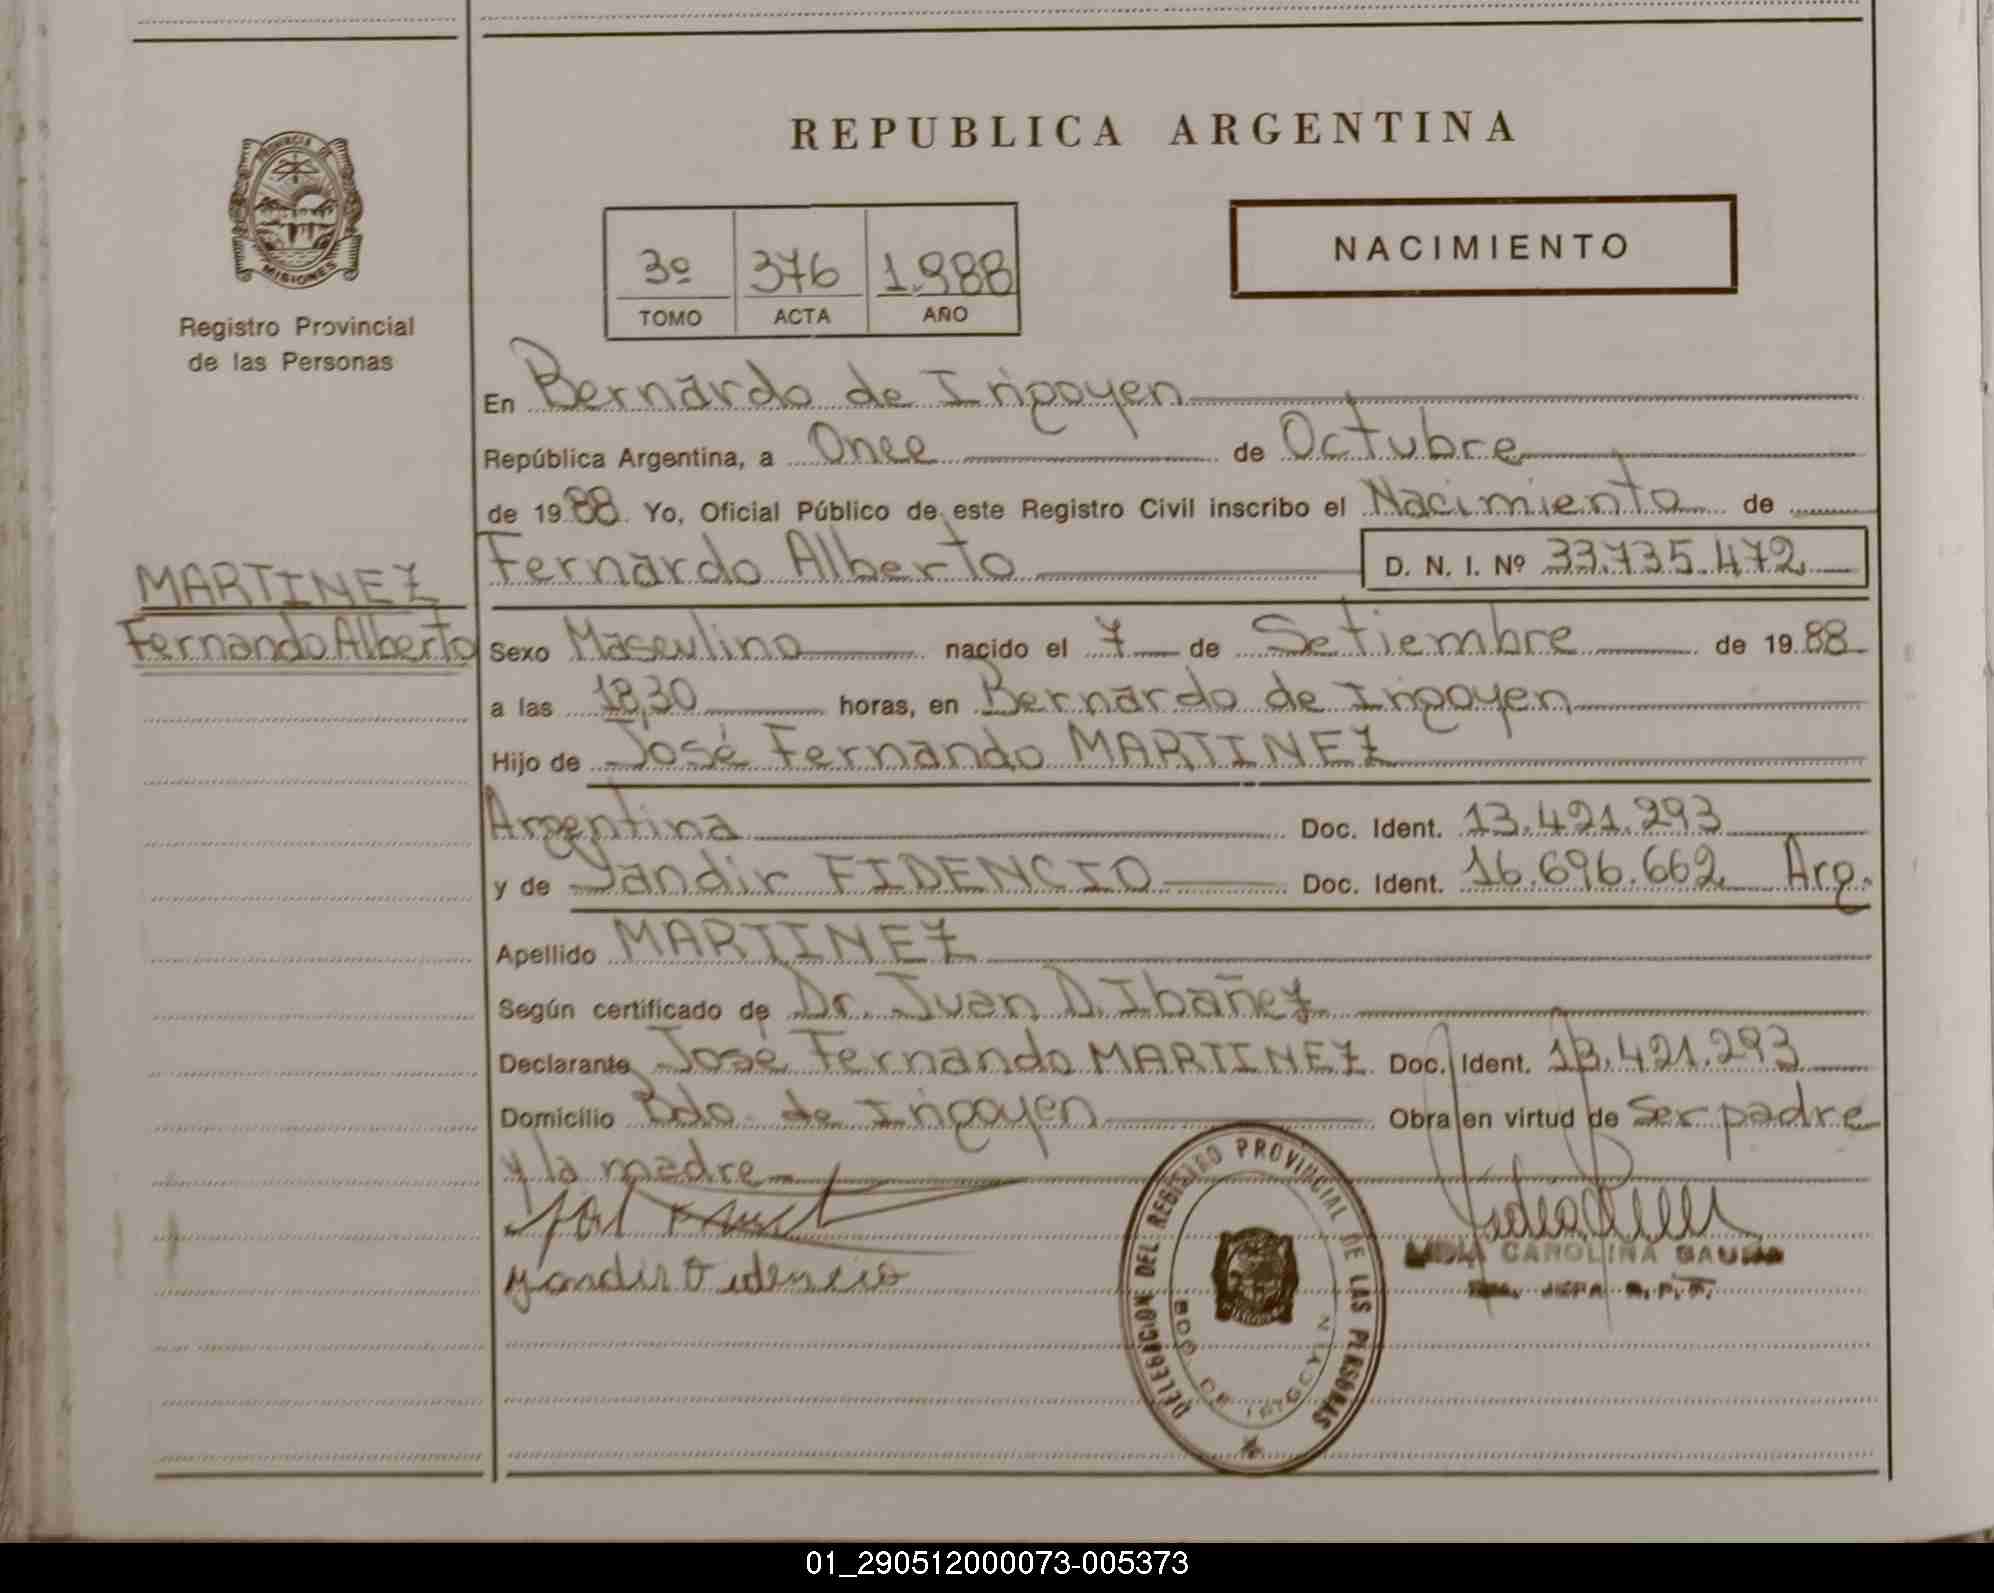 REPUBLICA ARGENTINA
PROVINCIA DE
MISIONES
Registro Provincial
de las Personas
NACIMIENTO
3º 376 1.988
TOMO ACTA AÑO
En Bernardo de Irigoyen
República Argentina, a Once de Octubre
de 1988 Yo, Oficial Público de este Registro Civil inscribo el Nacimiento de
Fernardo Alberto D. N. I. Nº 33.735.472
MARTINEZ
Fernando Alberto
Sexo Masculino nacido el 7 de Setiembre de 1988
a las 18,30 horas, en Bernardo de Irigoyen
Hijo de José Fernando MARTINEZ
Argentina Doc. Ident. 13.421.293
y de Yandir FIDENCIO Doc. Ident. 16.696.662 Arg.
Apellido MARTINEZ
Según certificado de Dr. Juan D. Ibañez
Declarante José Fernando MARTINEZ Doc. Ident. 13.421.293
Domicilio Bdo. de Irigoyen Obra en virtud de Ser padre
y la madre
Yandir Fidencio
DELEGACION DEL REGISTRO PROVINCIAL DE LAS PERSONAS
BDO. DE IRIGOYEN
LIDIA CAROLINA
01_290512000073-005373